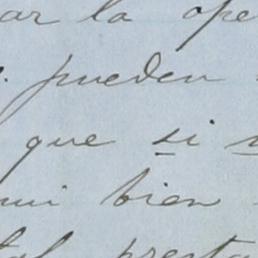 ar la ope
pueden
que si
mi bien
tal presta